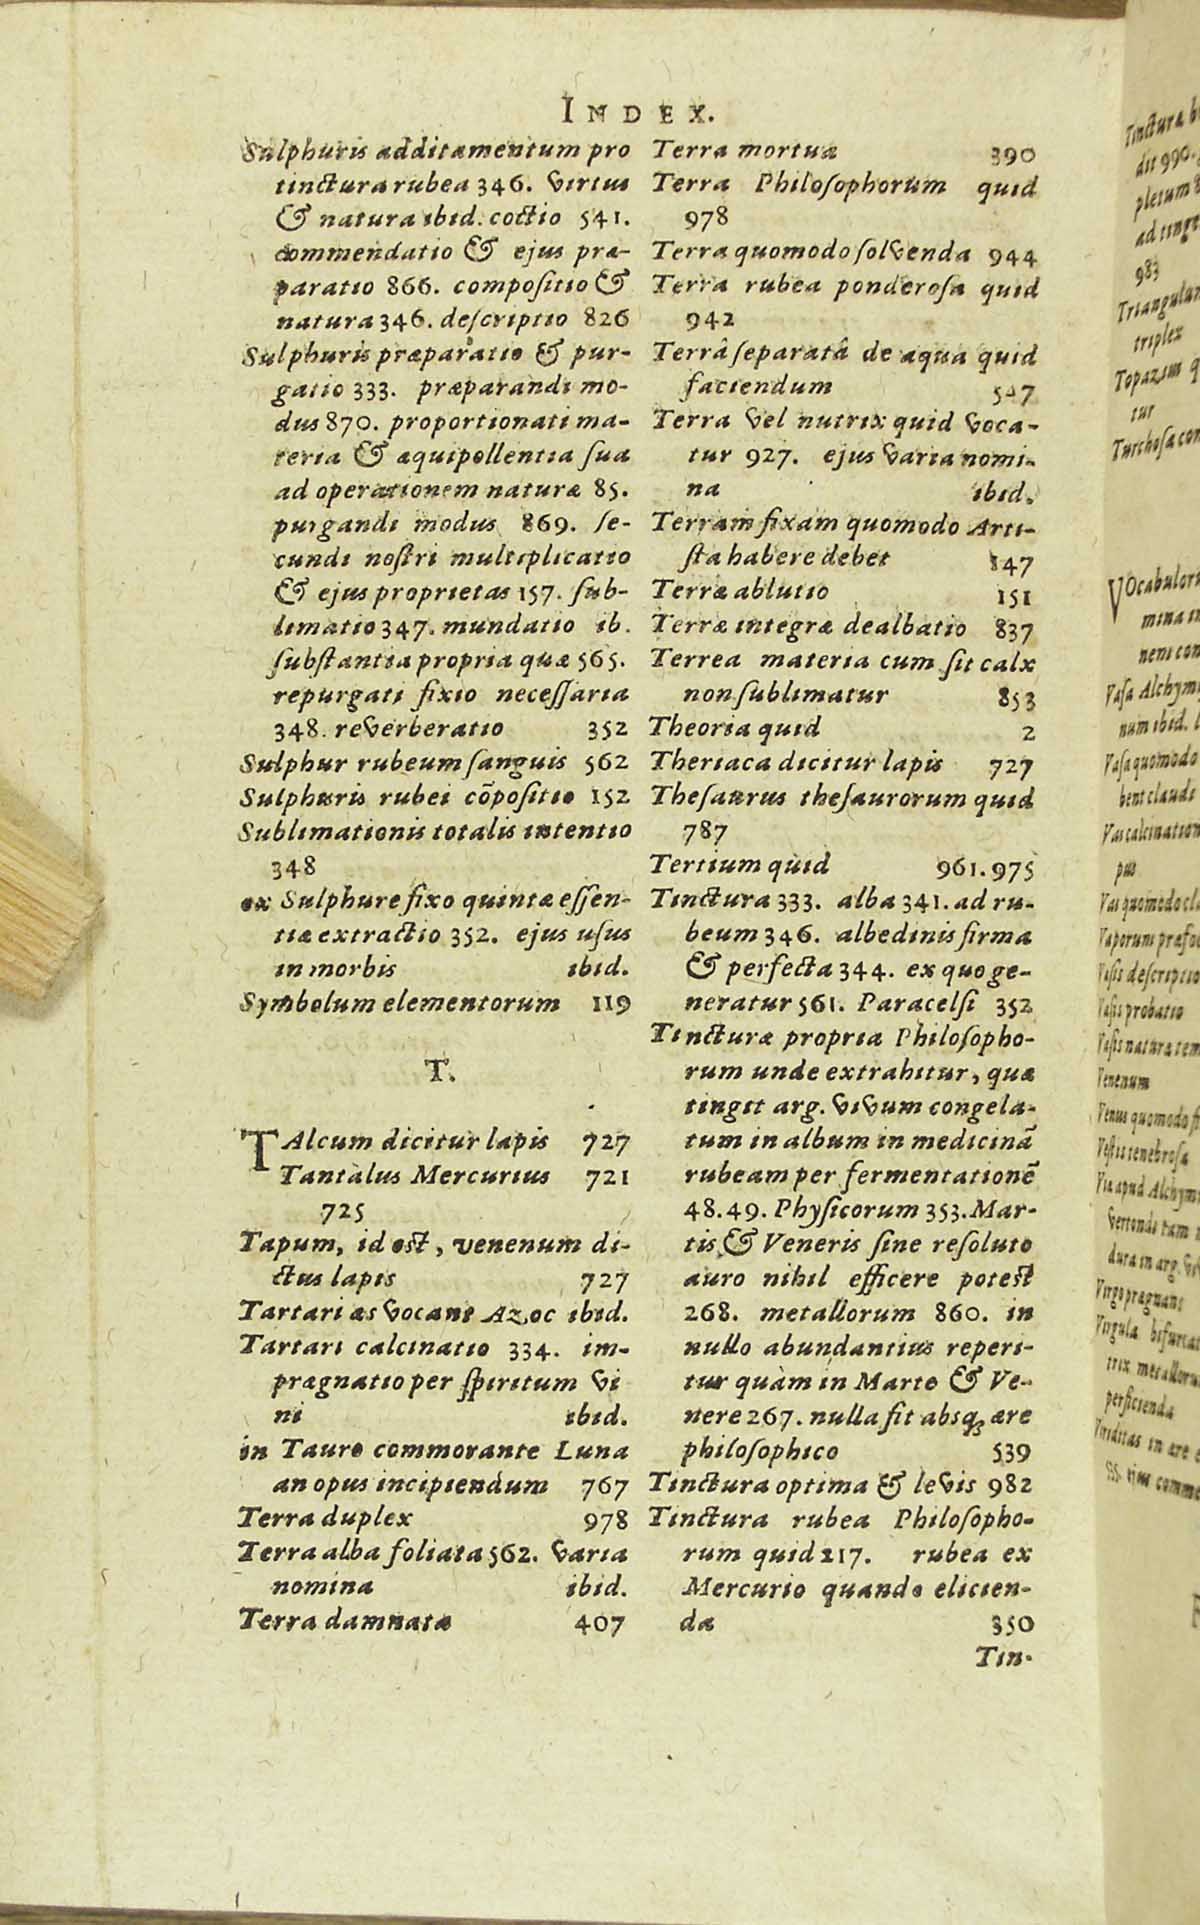 INDEX.
Sulphuris additamentum pro
tinctura rubea 346. virtus
& natura ibid. coctio 541.
commendatio & ejus præ-
paratio 866. compositio &
natura 346. descriptio 826
Sulphuris præparatio & pur-
gatio 333. præparandi mo-
dus 870. proportionati ma-
teria & æquipollentia sua
ad operationem naturæ 85.
purgandi modus 869. se-
cundi nostri multiplicatio
& ejus proprietas 157. sub-
limatio 347. mundatio ib.
substantia propria quæ 565.
repurgati fixio necessaria
348. reverberatio 352
Sulphur rubeum sanguis 562
Sulphuris rubei cõpositio 152
Sublimationis totalis intentio
348
ex Sulphure fixo quintæ essen-
tiæ extractio 352. ejus usus
in morbis ibid.
Symbolum elementorum 119
T.
TAlcum dicitur lapis 727
Tantalus Mercurius 721
725
Tapum, id est, venenum di-
ctus lapis 727
Tartari æs vocant Azoc ibid.
Tartari calcinatio 334. im-
prægnatio per spiritum vi
ni ibid.
in Tauro commorante Luna
an opus incipiendum 767
Terra duplex 978
Terra alba foliata 562. varia
nomina ibid.
Terra damnata 407
Terra mortua 390
Terra Philosophorum quid
978
Terra quomodo solvenda 944
Terra rubea ponderosa quid
942
Terrâ separatâ de aqua quid
faciendum 547
Terra vel nutrix quid voca-
tur 927. ejus varia nomi-
na ibid.
Terram fixam quomodo Arti-
sta habere debet 847
Terræ ablutio 151
Terræ integræ dealbatio 837
Terrea materia cum sit calx
non sublimatur 853
Theoria quid 2
Theriaca dicitur lapis 727
Thesaurus thesaurorum quid
787
Tertium quid 961. 975
Tinctura 333. alba 341. ad ru-
beum 346. albedinis firma
& perfecta 344. ex quo ge-
neratur 561. Paracelsi 352
Tincturæ propria Philosopho-
rum unde extrahitur, quæ
tingit arg. vivum congela-
tum in album in medicinã
rubeam per fermentationẽ
48. 49. Physicorum 353. Mar-
tis & Veneris sine resoluto
auro nihil efficere potest
268. metallorum 860. in
nullo abundantius reperi-
tur quàm in Marte & Ve-
nere 267. nulla fit absqꝫ ære
philosophico 539
Tinctura optima & levis 982
Tinctura rubea Philosopho-
rum quid 217. rubea ex
Mercurio quando elicien-
da 350
Tin-
Tinctura
dit 990.
pletum
983
triplex
Topazim
tur
Turchosa
VOcabuloru
mina
Vasa Alchym
num ibid.
Vasa quomodo
bent claudi
Vas calcination
pus
Vas quomodo
Vaporum
Vasis descriptio
Vasis probatio
Vasis natura
Venenum
Venus quomodo
Vestis tenebrosa
Via apud Alchym
dura in arg.
Virgo prægnans
Virgula
perficienda
Viriditas in ære